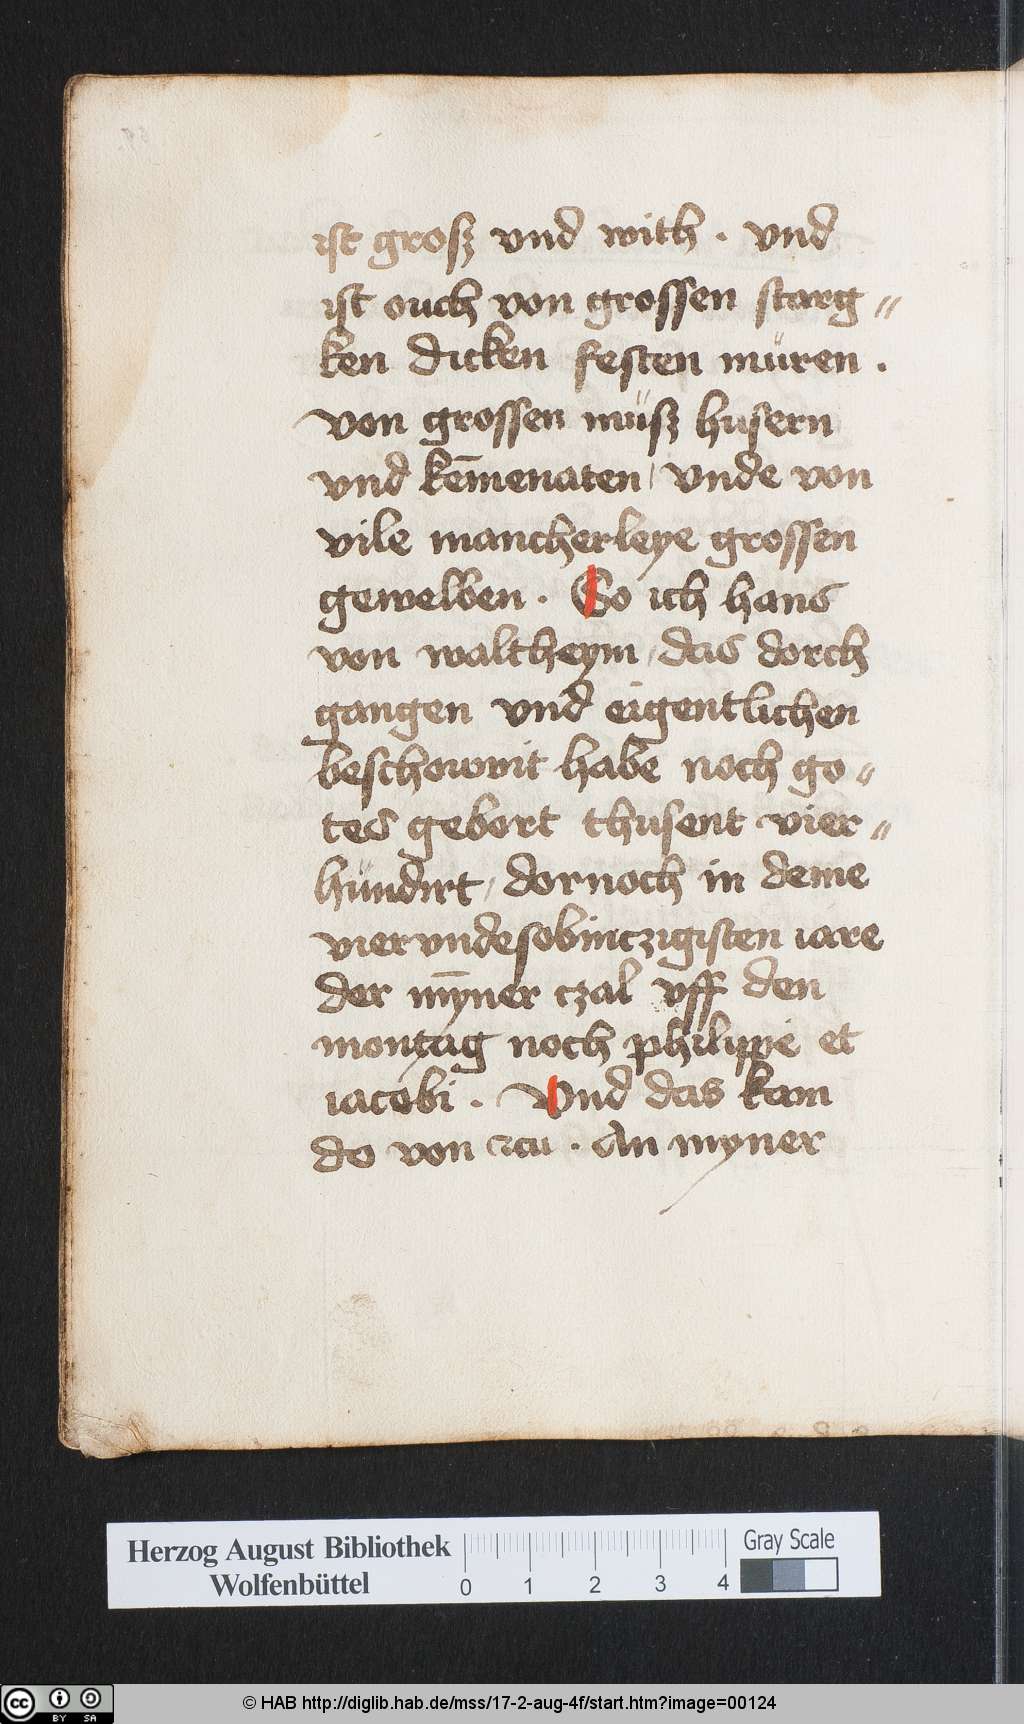 ist grosz vnd with . vnd
ist ouch von grossen starg〃
ken dicken festen müren .
von grossen müsz husern
vnd kēmenaten / vnde von
vile mancherleye grossen
gewelben . So ich hans
von waltheym / das dorch
gangen vnd eigentlichen
beschouwit habe noch go〃
tes gebort thusent vier〃
hündirt / dornoch in deme
viervndesobintzigisten iare
der mȳner czal vff den
montag noch philippi et
iacobi . Vnd das kam
do von zcu . An myner
Herzog August Bibliothek
Wolfenbüttel
0 1 2 3 4
Gray Scale
cc BY SA
© HAB http://diglib.hab.de/mss/17-2-aug-4f/start.htm?image=00124